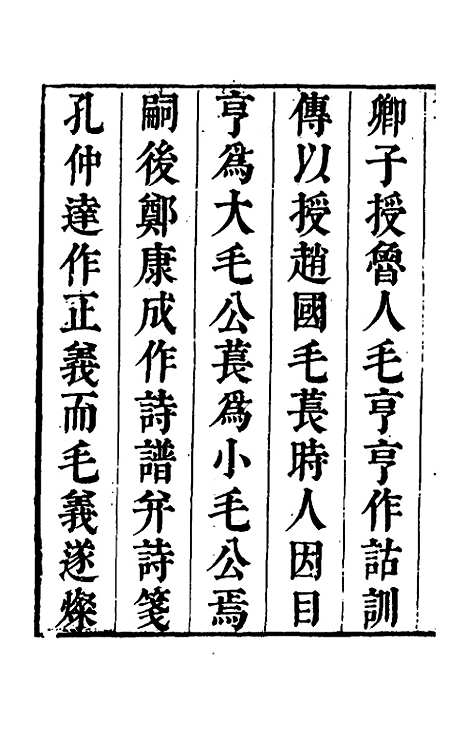 卿子授魯人毛亨亨作詁訓
傳以授趙國毛萇時人因目
亨爲大毛公萇爲小毛公焉
嗣後鄭康成作詩譜并詩箋
孔仲達作正義而毛義遂燦